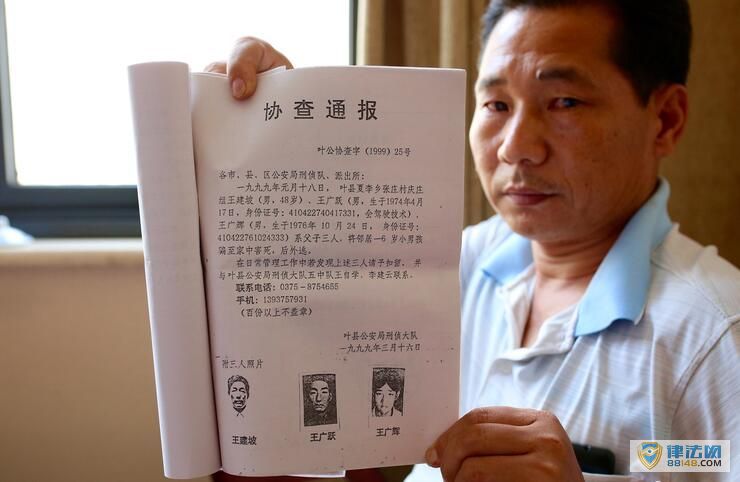 协查通报
叶公协查字(1999)25号
各市、县、区公安局刑侦队、派出所:
一九九九年元月十八日, 叶县夏李乡张庄村庆庄
组王建坡(男,48岁)、王广跃(男,生于1974年4月
17日,身份证号:410422740417331,会驾驶技术)、
王广辉(男,生于1976年 10 月 24 日, 身份证号:
410422761024333)系父子三人,将邻居一6 岁小男孩
骗至家中害死,后外逃。
在日常管理工作中若发现上述三人请予扣留, 并
与叶县公安局刑侦大队五中队王自学、李建云联系。
联系电话:0375-8754655
手机:1393757931
(百份以上不盖章)
叶县公安局刑侦大队
一九九九年三月十六日
附三人照片
王建坡 王广跃 王广辉
律法网
88148.COM